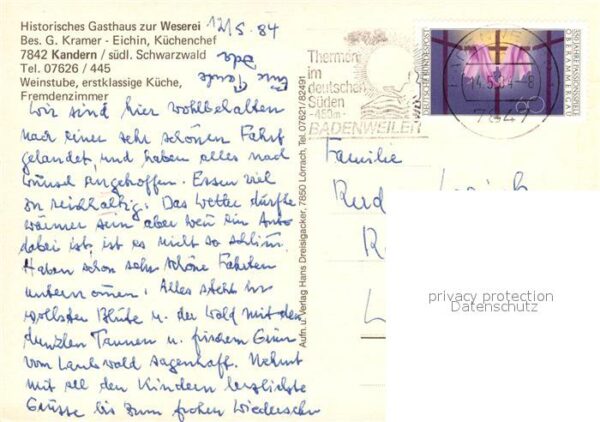 Historisches Gasthaus zur Weserei
Bes. G. Kramer - Eichin, Küchenchef
7842 Kandern / südl. Schwarzwald
Tel. 07626 / 445
Weinstube, erstklassige Küche,
Fremdenzimmer
12/5. 84
Wir sind hier wohlbehalten
nach einer sehr schönen Fahrt
gelandet, und haben alles nach
Wunsch angetroffen. Essen viel
zu reichhaltig. Das Wetter dürfte
wärmer sein aber wenn ein Auto
dabei ist, ist es nicht so schlimm.
Haben schon sehr schöne Fahrten
unternommen. Alles steht in
vollster Blüte u. der Wald mit den
dunklen Tannen u. frischem Grün
vom Laubwald sagenhaft. Nehmt
mit all den Kindern herzlichste
Grüsse bis zum frohen Wiedersehn
Aufn. u. Verlag Hans Dreisigacker, 7850 Lörrach, Tel. 07621/82491
Thermen
im
deutschen
Süden
-450m-
BADENWEILER
14.5.84-8
7847
DEUTSCHE BUNDESPOST
60
350 JAHRE PASSIONSSPIELE
OBERAMMERGAU
Familie
privacy protection
Datenschutz